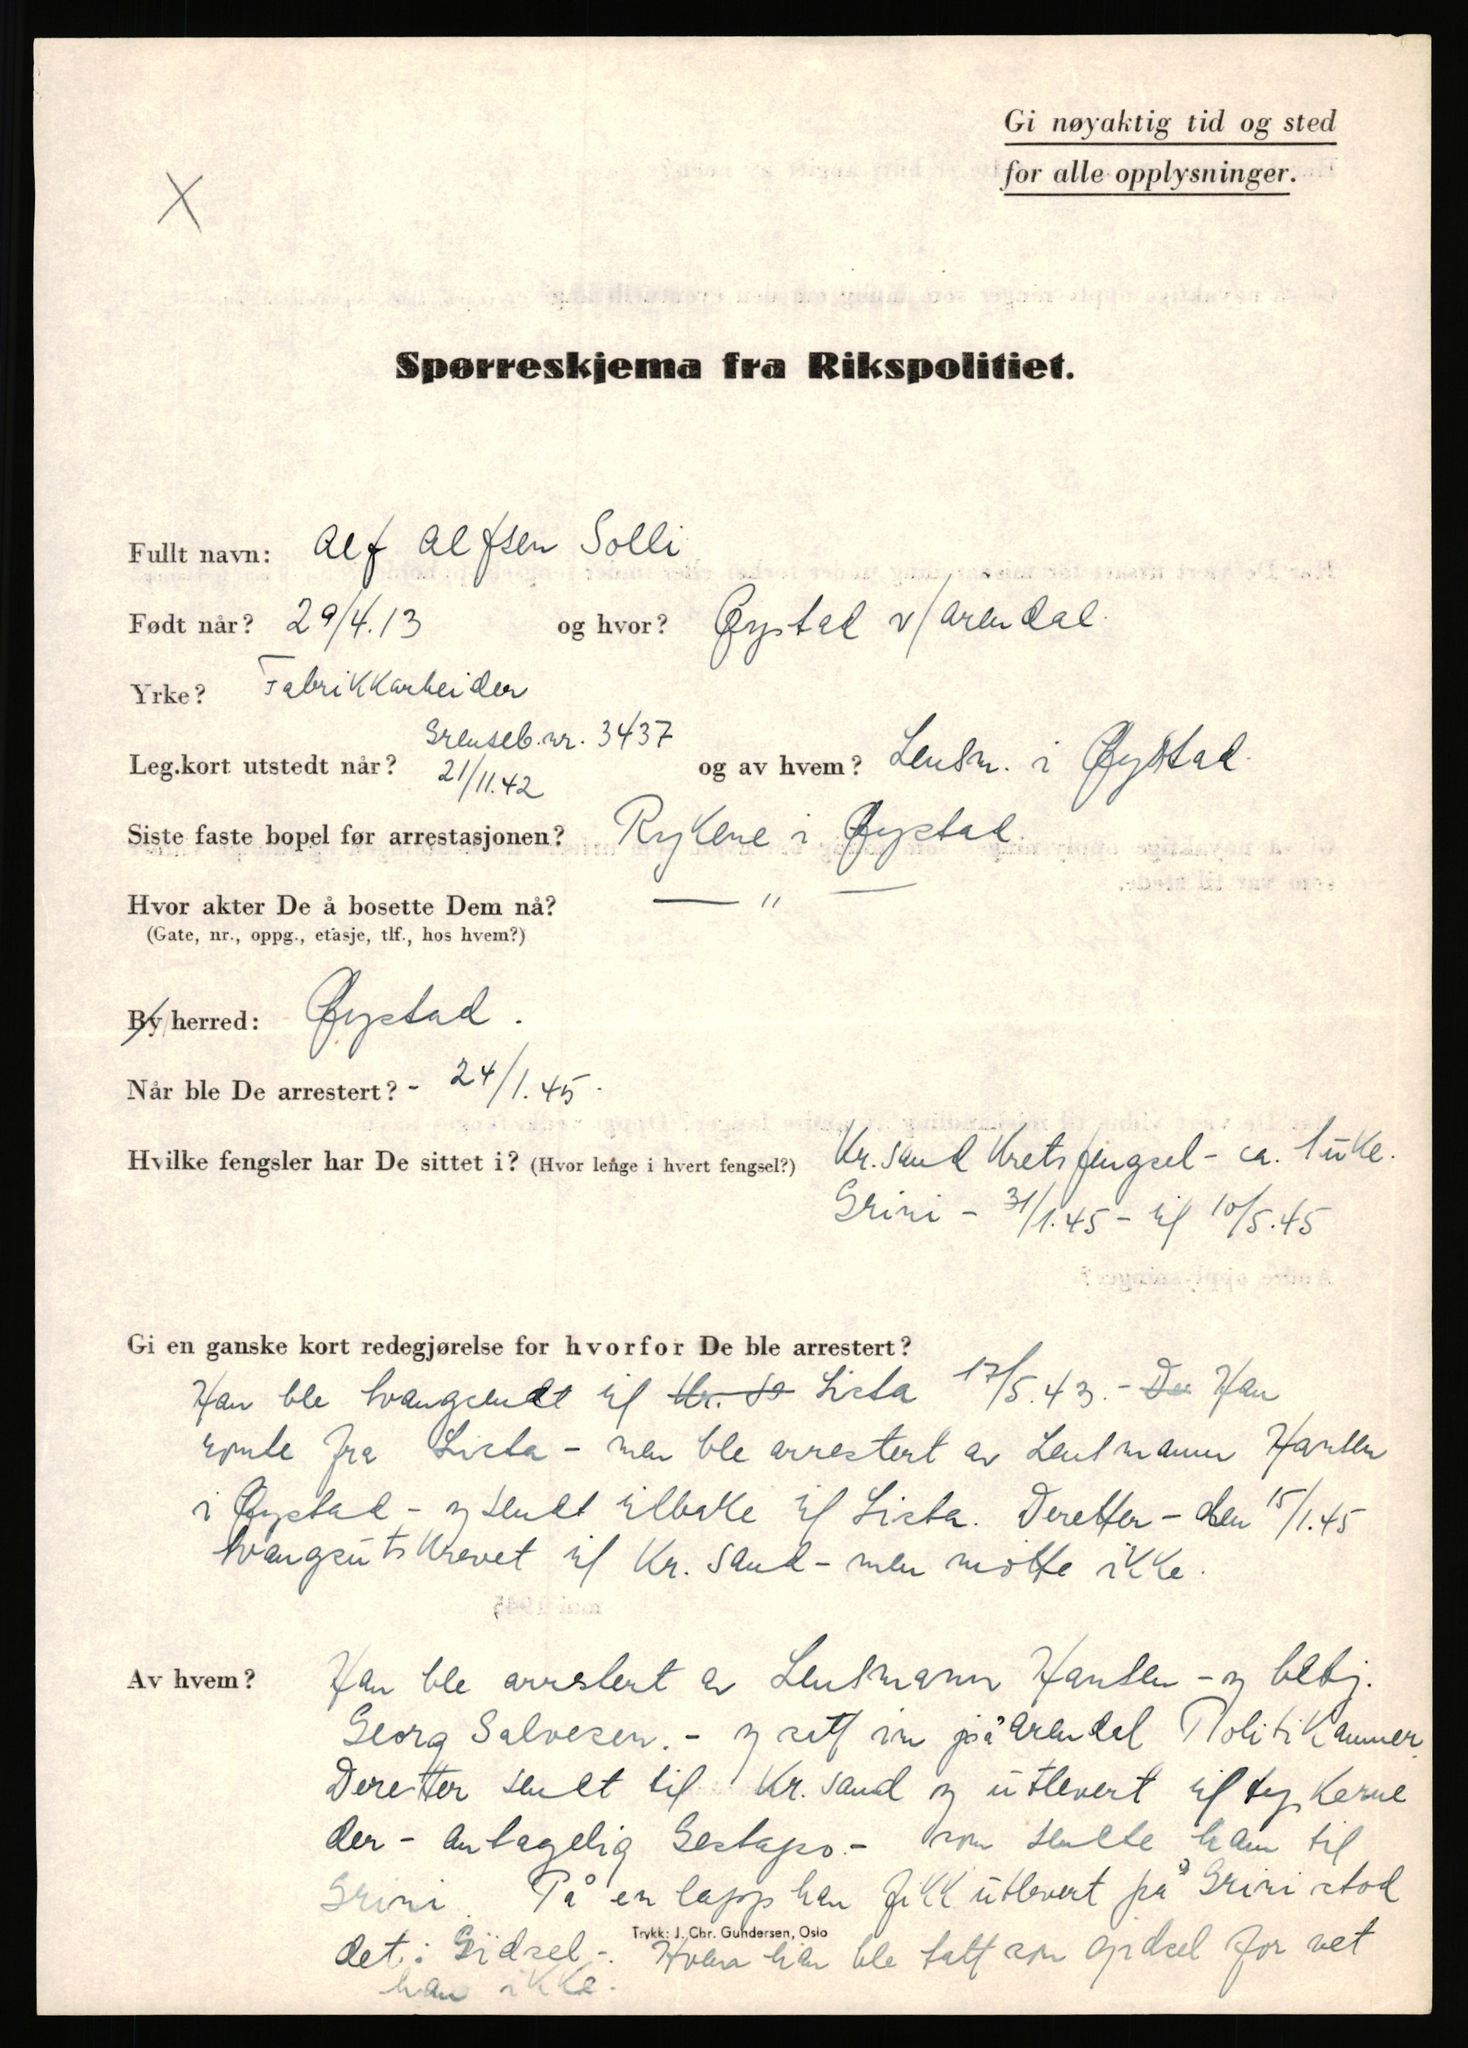 Gi nøyaktig tid og sted
for alle opplysninger.
X
Spørreskjema fra Rikspolitiet.
Fullt navn: Alf Alfsen Solli
Født når? 29/4.13 og hvor? Øystad v/Arendal.
Yrke? Fabrikkarbeider
Grenseb.nr. 3437
Leg.kort utstedt når? 21/11.42 og av hvem? Lensm. i Øystad.
Siste faste bopel før arrestasjonen? Rykene i Øystad.
Hvor akter De å bosette Dem nå? — " —
(Gate, nr., oppg., etasje, tlf., hos hvem?)
By/herred: Øystad.
Når ble De arrestert? - 24/1.45.
Hvilke fengsler har De sittet i? (Hvor lenge i hvert fengsel?) Kr.sand Kretsfengsel - ca. 1 uke.
Grini - 31/1.45 - til 10/5.45
Gi en ganske kort redegjørelse for hvorfor De ble arrestert?
Han ble tvangsendt til Kr. Lista 17/5.43. - Der Han
rømte fra Lista - men ble arrestert av Lensmann Hansen
i Øystad - og sendt tilbake til Lista. Deretter - den 15/1.45
tvangsutskrevet til Kr. sand - men møtte ikke.
Av hvem? Han ble arrestert av Lensmann Hansen - og betj.
Georg Salvesen. - og satt inn på Arendal Politikammer.
Deretter sendt til Kr. sand og utlevert til tyskerne
der - antagelig Gestapo. - som sendte ham til
Grini. På en lapp han fikk utlevert på Grini stod
det: Gidsel -. Hvem han ble tatt som gidsel for vet
han ikke.
Trykk: J. Chr. Gundersen, Oslo